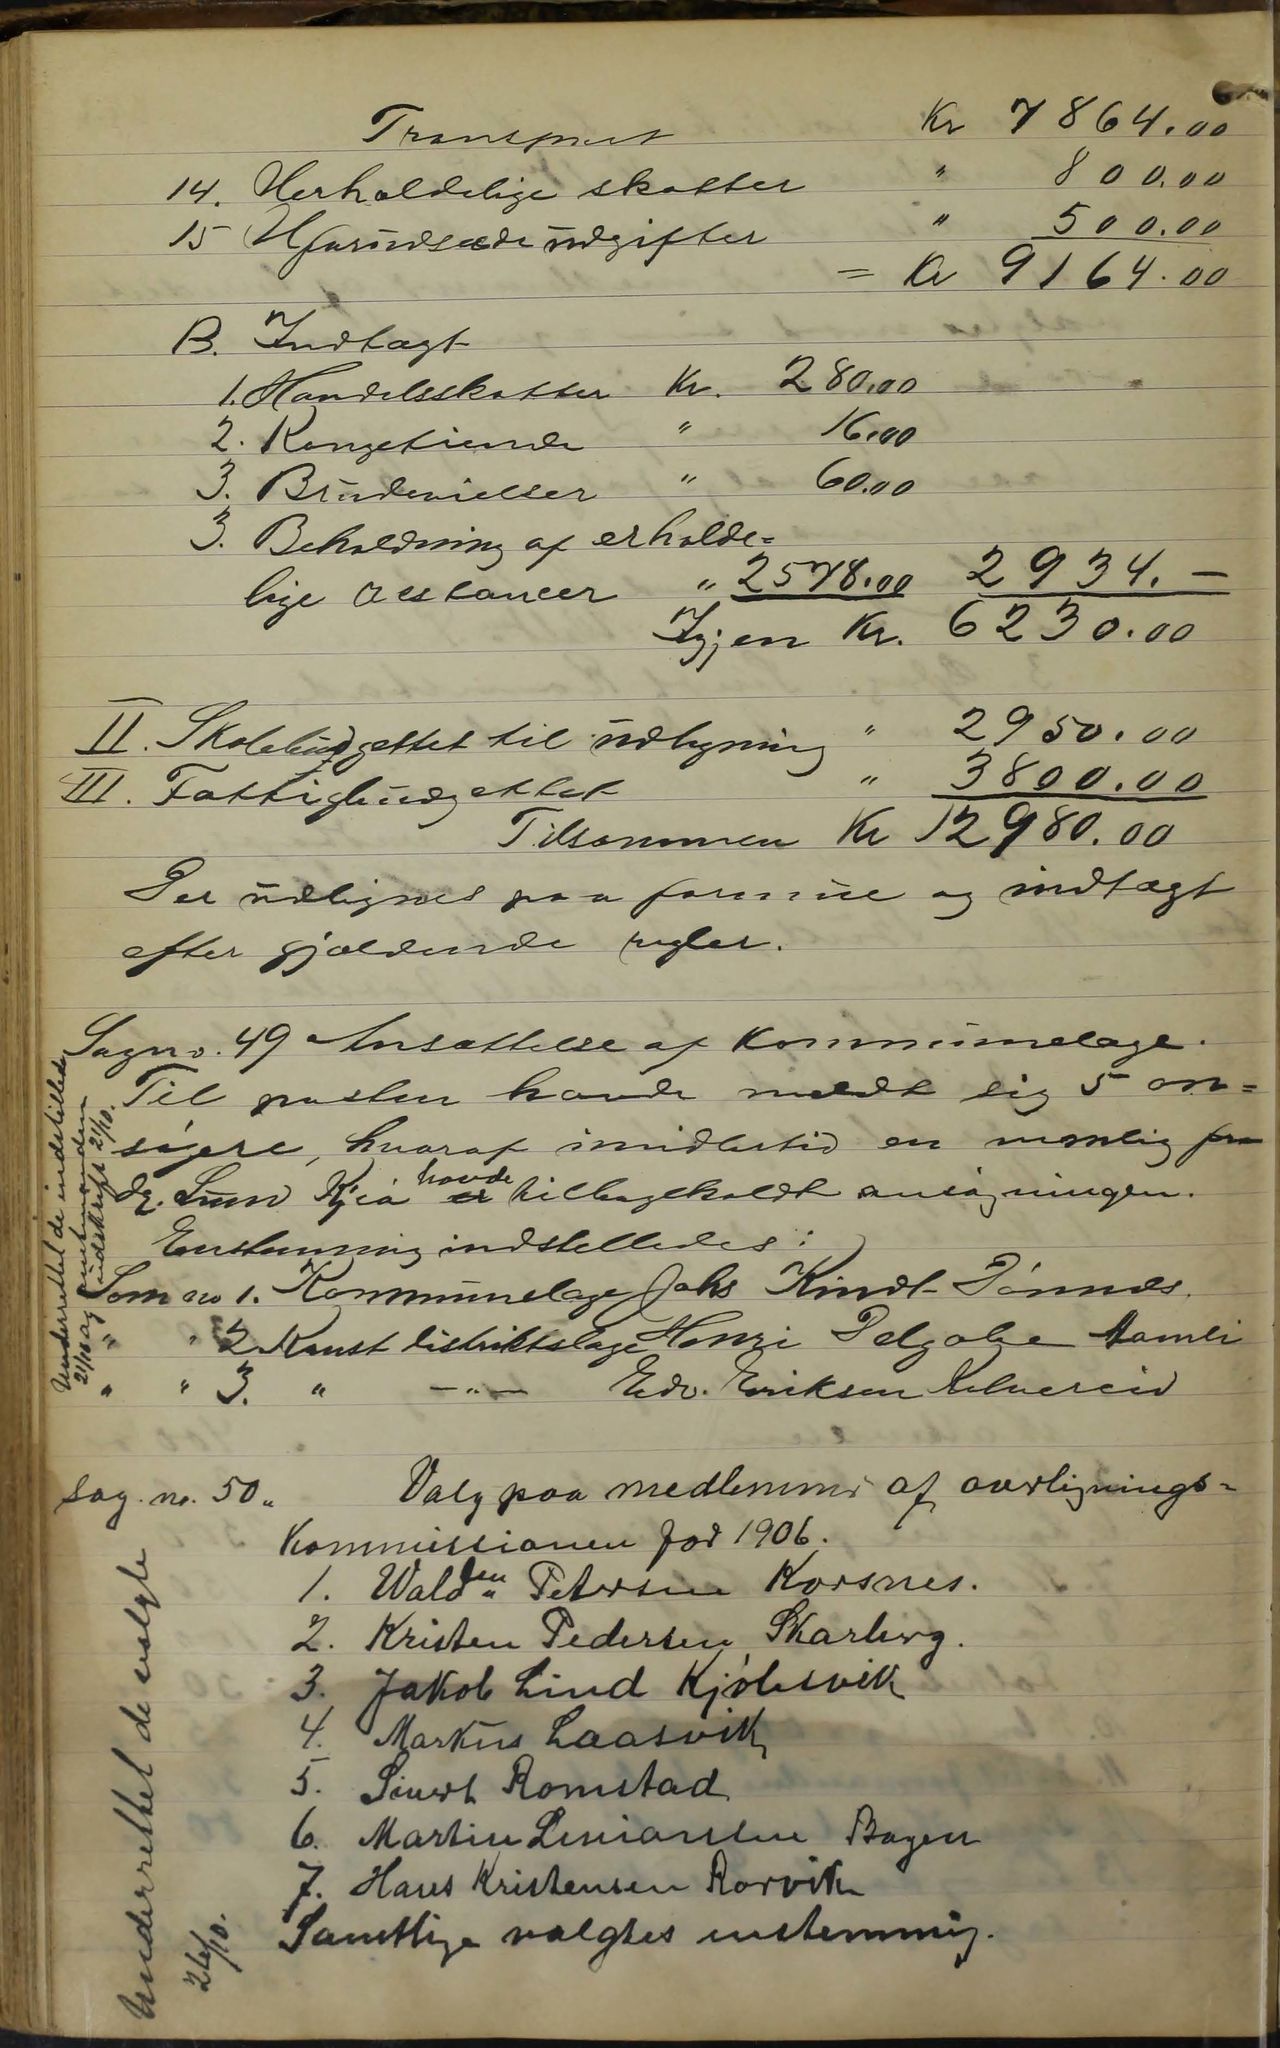 Transport Kr 7864.00
14. Uerholdelige skatter " 800.00
15 Uforudseede udgifter " 500.00
= Kr 9164.00
B. Indtægt
1. Handelsskatter Kr. 280.00
2. Kongetiende " 16.00
3. Brudevielser " 60.00
3. Beholdning af erholde-
lige restancer " 2578.00 2934.-
Igjen Kr. 6230.00
II. Skolebudgettet til udligning " 2950.00
III. Fattigbudgettet " 3800.00
Tilsammen Kr 12980.00
Der udlignes paa formue og indtægt
efter gjældende regler.
Sagno. 49 Ansættelse af Kommunelæge.
Til posten havde meldt sig 5 an-
søgere, hvoraf imidlertid en nemlig fra
dr. Lund Kjia havde tilbageholdt ansøgningen.
Enstemmig indstilledes:
Som no 1. Kommunelæge Johs Kindt Dønnes.
" " 2 Konst distriktslæge Henri Aamli
" " 3. " -"- Edv. Eriksen Kolvereid
Underrettet de indstillede
21/10 og amtmanden
udskrift 21/10.
Sag. no. 50. Valg paa medlemmer af overlignings-
Kommissionen for 1906.
1. Petersen Korsnes.
2. Kristen Pedersen Skarberg.
3. Jakob Lind Kjøbsvik
4. Markus Laasvik
5. Sivert Romstad
6. Martin Bagen
7. Hans Kristensen Rørvik
Samtlige valgtes enstemmig.
Underrettet de valgte
26/10.